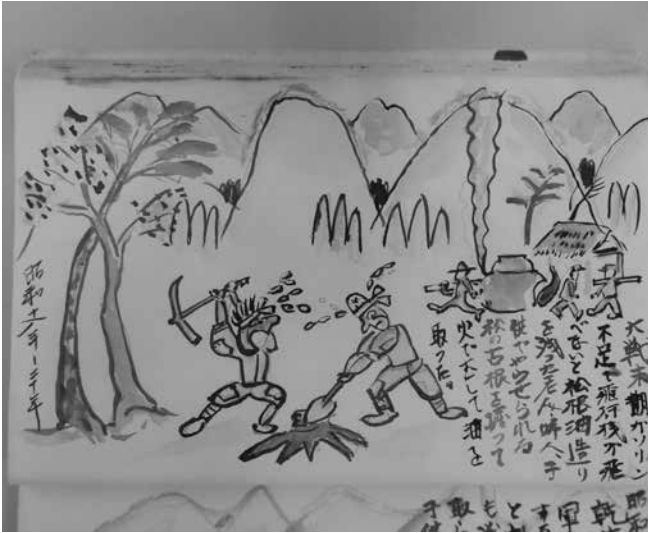 大戦末期ガソリン
不足で飛行機が飛
べないと松根油造り
を残った老人、婦人、子
供でやらせられる
松の古根を掘って
火でたして油を
取った。
昭和十八年ー二十年
昭和
軍
取
子供